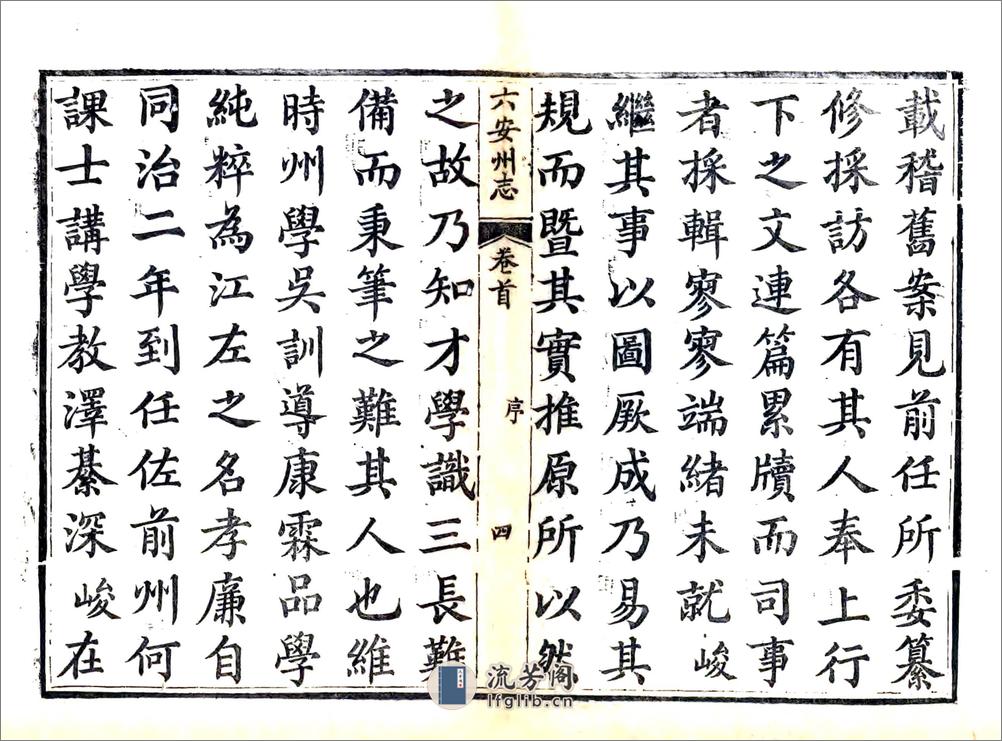 載稽舊案見前任所委纂
修採訪各有其人奉上行
下之文連篇累牘而司事
者採輯寥寥端緒未就峻
繼其事以圖厥成乃易其
規而暨其實推原所以然
六安州志 卷首 序 四
之故乃知才學識三長難
備而秉筆之難其人也維
時州學吳訓導康霖品學
純粹為江左之名孝廉自
同治二年到任佐前州何
課士講學教澤綦深峻在
流芳阁
lfglib.cn